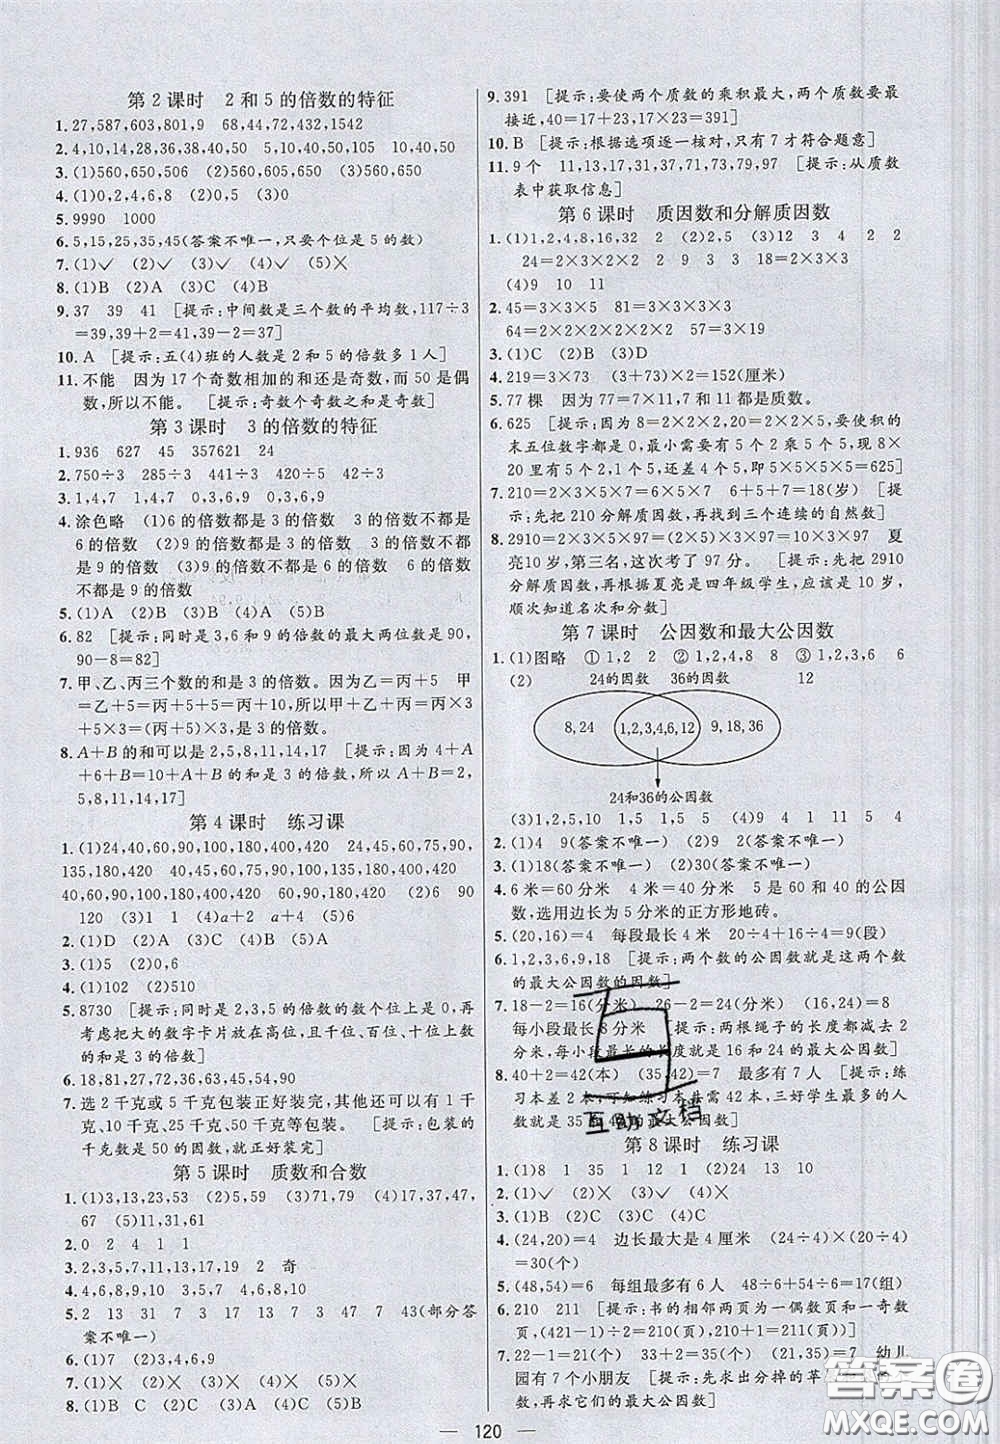 第2课时 2和5的倍数的特征
1.27,587,603,801,9 68,44,78,430,432,1542
2.4,10,14,28,36,38,40,50 5,10,40,45,50 10,40,50
3.(1)560,650 (2)560,605,650 (3)560,650
4.(1)0,2,4,6,8 (2)0,5 (3)0
5.9990 1000
6.5,15,25,35,45(答案不唯一,只要个位是5的数)
7.(1)✓ (2)✓ (3)✓ (4)✓ (5)×
8.(1)B (2)A (3)C (4)B
9.37 39 41 [提示:中间数是三个数的平均数,117÷3
=39,39+2=41,39-2=37]
10.A [提示:五(4)班的人数是2和5的倍数多1人]
11.不能 因为17个奇数相加的和还是奇数,而50是偶
数,所以不能。[提示:奇数个奇数之和是奇数]
第3课时 3的倍数的特征
1.936 627 45 357621 24
2.750÷3 285÷3 441÷3 420÷5 42÷3
3.1,4,7 1,4,7 0,3,6,9 0,3,6,9
4.涂色略 (1)6的倍数都是3的倍数 3的倍数不都是
6的倍数 (2)9的倍数都是3的倍数 3的倍数不都
是9的倍数 (3)9的倍数不都是6的倍数 6的倍数
不都是9的倍数
5.(1)A (2)B (3)C (4)B
6.82 [提示:同时是3,6和9的倍数的最大两位数是90,
90-8=82]
7.甲、乙、丙三个数的和是3的倍数。因为乙=丙+5 甲
=乙+5=丙+5+5=丙+10,所以甲+乙+丙=丙×
3+15,所以丙×3+15是3的倍数。
8.A+B的和可以是2,5,8,11,14,17 [提示:因为4+A
+6+B=10+A+B的和是3的倍数,所以A+B=2,
5,8,11,14,17]
第4课时 练习课
1.(1)24,40,60,90,100,180,400,420 24,45,60,75,90,
135,180,420 40,45,60,75,90,100,135,180,400,420
40,60,90,100,180,400,420 60,90,180,420 (2)6 90
120 (3)1 1 (4)a+2 a+4 (5)6
2.(1)D (2)A (3)C (4)B (5)A
3.(1)✓ (2)✓ (3)× (4)✓ (5)×
4.(1)102 (2)510
5.8730 [提示:同时是2,3,5的倍数个位上是0,再
考虑把大的数字卡片放在高位,且千位、百位、十位上数
字的和是3的倍数]
6.18,81,27,72,36,63,45,54,90
7.选2千克或5千克包装正好装完,其他还可以有1千
克、10千克、25千克、50千克等包装。[提示:包装的
千克数是50的因数,就正好装完]
第5课时 质数和合数
1.(1)3,13,23,53 (2)59 (3)2 (4)17,37,47,
67 (5)11,31,41,61
2.0 2 4 1
3.2,3,5,7,11,13,17,19 2 奇
4.(1)4,8,10 (2)3,6,9,10 (3)4,6,8,9,10
5.2 13 31 7 13 3 47 7 43(部分答
案不唯一)
6.(1)7 (2)3,4,6,9
7.(1)✓ (2)✓ (3)× (4)× (5)×
8.(1)B C (2)C A (3)D (4)B (5)B
9.391 [提示:要使两个质数的乘积最大,两个质数要最
接近,40=17+23,17×23=391]
10.B [提示:根据选项逐一核对,只有7才符合题意]
11.9个 11,13,17,31,37,71,73,79,97 [提示:从质数
表中获取信息]
第6课时 质因数和分解质因数
1.(1)1,2,4,8,16,32 2 (2)2,5 (3)12 3 4 2 2
24=2×2×2×3 2 2 9 3 3 18=2×3×3
(4)9 10 11
2.45=3×3×5 81=3×3×3×3
64=2×2×2×2×2×2 57=3×19
3.(1)C (2)B (3)D
4.219=3×73 (3+73)×2=152(厘米)
5.77棵 因为77=7×11,7和11都是质数。
6.625 [提示:因为8=2×2×2,20=2×2×5,要使积的
末五位数字都是0,最少需要有5个2乘5个5,现8×
20里面有5个2,1个5,还差4个5,即5×5×5×5=625]
7.210=2×3×5×7=6×5×7 6+5+7=18(岁) [
提示:先把210分解质因数,再找到三个连续的自然数]
8.2910=2×3×5×97=(2×5)×3×97=10×3×97 夏
亮10岁,第三名,这次考了97分。[提示:先把2910
分解质因数,再根据夏亮是四年级学生,应该是10岁,
顺次知道名次和分数]
第7课时 公因数和最大公因数
1.(1)图略 ①1,2 2 ②1,2,4,8 8 ③1,2,3,6 6
(2) 24的因数 36的因数 12
8,24 1,2,3,4,6,12 9,18,36
24和36的公因数
(3)1,2,5,10 1,5 1,5 5 (4)9 8 1 1 11 5 4
2.(1)4 9(答案不唯一) (2)4 9(答案不唯一)
3.(1)18(答案不唯一) (2)30(答案不唯一)
4.6米=60分米 4米=40分米 5是60和40的公因
数,选用边长为5分米的正方形地砖。
5.(20,16)=4 每段最长4米 20÷4+16÷4=9(段)
6.1,2,3,6,9,18 [提示:两个数的公因数就是这两个数
的最大公因数的因数]
7.18-2=16(分米) 26-2=24(分米) (16,24)=8
每小段最长8分米 [提示:两根绳子的长度都减去2
分米,每小段最长的长度就是16和24的最大公因数]
8.40+2=42(本) (35,42)=7 最多有7人 [提示:练
习本差2本,可知练习本共需42本,三好学生最多的人
数是35和42的最大公因数]
第8课时 练习课
1.(1)8 1 35 1 12 1 (2)24 13 10
2.(1)✓ (2)× (3)× (4)×
3.(1)B (2)C (3)C (4)C
4.(24,20)=4 边长最大是4厘米 (24÷4)×(20÷4)
=30(个)
5.(48,54)=6 每组最多有6人 48÷6+54÷6=17(组)
6.210 211 [提示:书的相邻两页为一偶数页和一奇数
页,(421-1)÷2=210(页),(421+1)÷2=211(页)]
7.22-1=21(个) 33+2=35(个) (21,35)=7 幼儿
园有7个小朋友 [提示:先求出分掉的苹
数,再求它们的最大公因数]
互助文档
答案圈
MXQE.COM
— 120 —